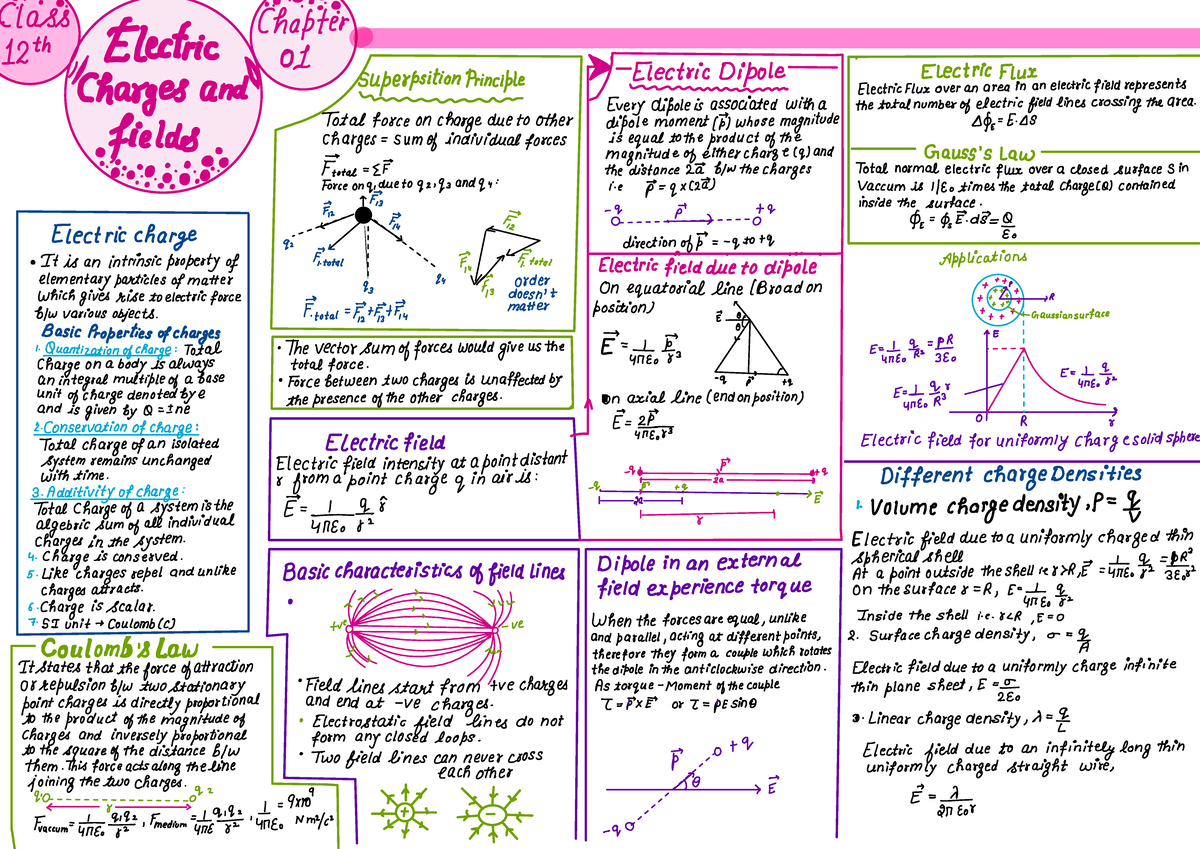 Class
12th
Electric
Charges and
fields
Chapter
01
Electric charge
• It is an intrinsic property of
elementary particles of matter
which gives rise to electric force
b/w various objects.
Basic Properties of charges
1. Quantization of charge: Total
Charge on a body is always
an integral multiple of a base
unit of charge denoted by e
and is given by Q = ±ne
2. Conservation of charge:
Total charge of an isolated
system remains unchanged
with time.
3. Additivity of charge:
Total Charge of a system is the
algebric sum of all individual
Charges in the system.
4. Charge is conserved.
5. Like charges repel and unlike
charges attracts.
6. Charge is scalar.
7. SI unit → Coulomb(c)
Coulomb's Law
It states that the force of attraction
or repulsion b/w two stationary
point charges is directly proportional
to the product of the magnitude of
charges and inversely proportional
to the square of the distance b/w
them. This force acts along the line
joining the two charges.
q q2
r
Fvaccum = 1/4πε₀ q1q2/r², Fmedium = 1/4πε q1q2/r², 1/4πε₀ = 9x10⁹ Nm²/c²
Superpsition Principle
Total force on charge due to other
Charges = sum of individual forces
F⃗total = ΣF⃗
Force on q1 due to q2, q3 and q4:
F⃗12 F⃗13 F⃗14
q2 F⃗1.total q3 q4
F⃗12 F⃗14 F⃗13 F⃗1.total
order
doesn't
matter
F⃗.total = F⃗12+F⃗13+F⃗14
• The vector sum of forces would give us the
total force.
• Force between two charges is unaffected by
the presence of the other charges.
Electric field
Electric field intensity at a point distant
r from a point charge q in air is:
E⃗ = 1/4πε₀ q/r² r̂
Basic characteristics of field lines
•
+ve -ve
• Field lines start from +ve charges
and end at -ve charges.
• Electrostatic field lines do not
form any closed loops.
• Two field lines can never cross
each other
+ −
Electric Dipole
Every dipole is associated with a
dipole moment (p⃗) whose magnitude
is equal to the product of the
magnitude of either charge (q) and
the distance 2a⃗ b/w the charges
i.e p⃗ = q x(2a⃗)
-q p⃗ +q
direction of p⃗ = -q to +q
Electric field due to dipole
On equatorial line (Broad on
position)
E⃗ = 1/4πε₀ p⃗/r³
E⃗ θ θ
-q p⃗ +q
on axial line (end on position)
E⃗ = 2p⃗/4πε₀r³
-q p⃗ +q
2a
-q p⃗ +q E⃗
2a
r
Dipole in an external
field experience torque
When the forces are equal, unlike
and parallel, acting at different points,
therefore they form a couple which rotates
the dipole in the anticlockwise direction.
As torque - Moment of the couple
τ = p⃗xE⃗ or τ = pE sinθ
p⃗ +q
θ E⃗
-q
Electric Flux
Electric Flux over an area in an electric field represents
the total number of electric field lines crossing the area.
Δϕε = E·ΔS
Gauss's Law
Total normal electric flux over a closed surface S in
Vaccum is 1/ε₀ times the total charge(Q) contained
inside the surface.
ϕε = ϕs E⃗.ds⃗ = Q/ε₀
Applications
R
Gaussian surface
E
E = 1/4πε₀ q/R² = ρR/3ε₀
E = 1/4πε₀ q r/R³
E = 1/4πε₀ q/r²
O R r
Electric field for uniformly charge solid sphere
Different charge Densities
1. Volume charge density, ρ = q/V
Electric field due to a uniformly charged thin
spherical shell
At a point outside the shell i.e r>R, E⃗ = 1/4πε₀ q/r² = ρR³/3ε₀r²
On the surface r = R, E = 1/4πε₀ q/r²
Inside the shell i.e. r<R, E=0
2. Surface charge density, σ = q/A
Electric field due to a uniformly charge infinite
thin plane sheet, E = σ/2ε₀
3. Linear charge density, λ = q/L
Electric field due to an infinitely long thin
uniformly charged straight wire,
E⃗ = λ/2πε₀r